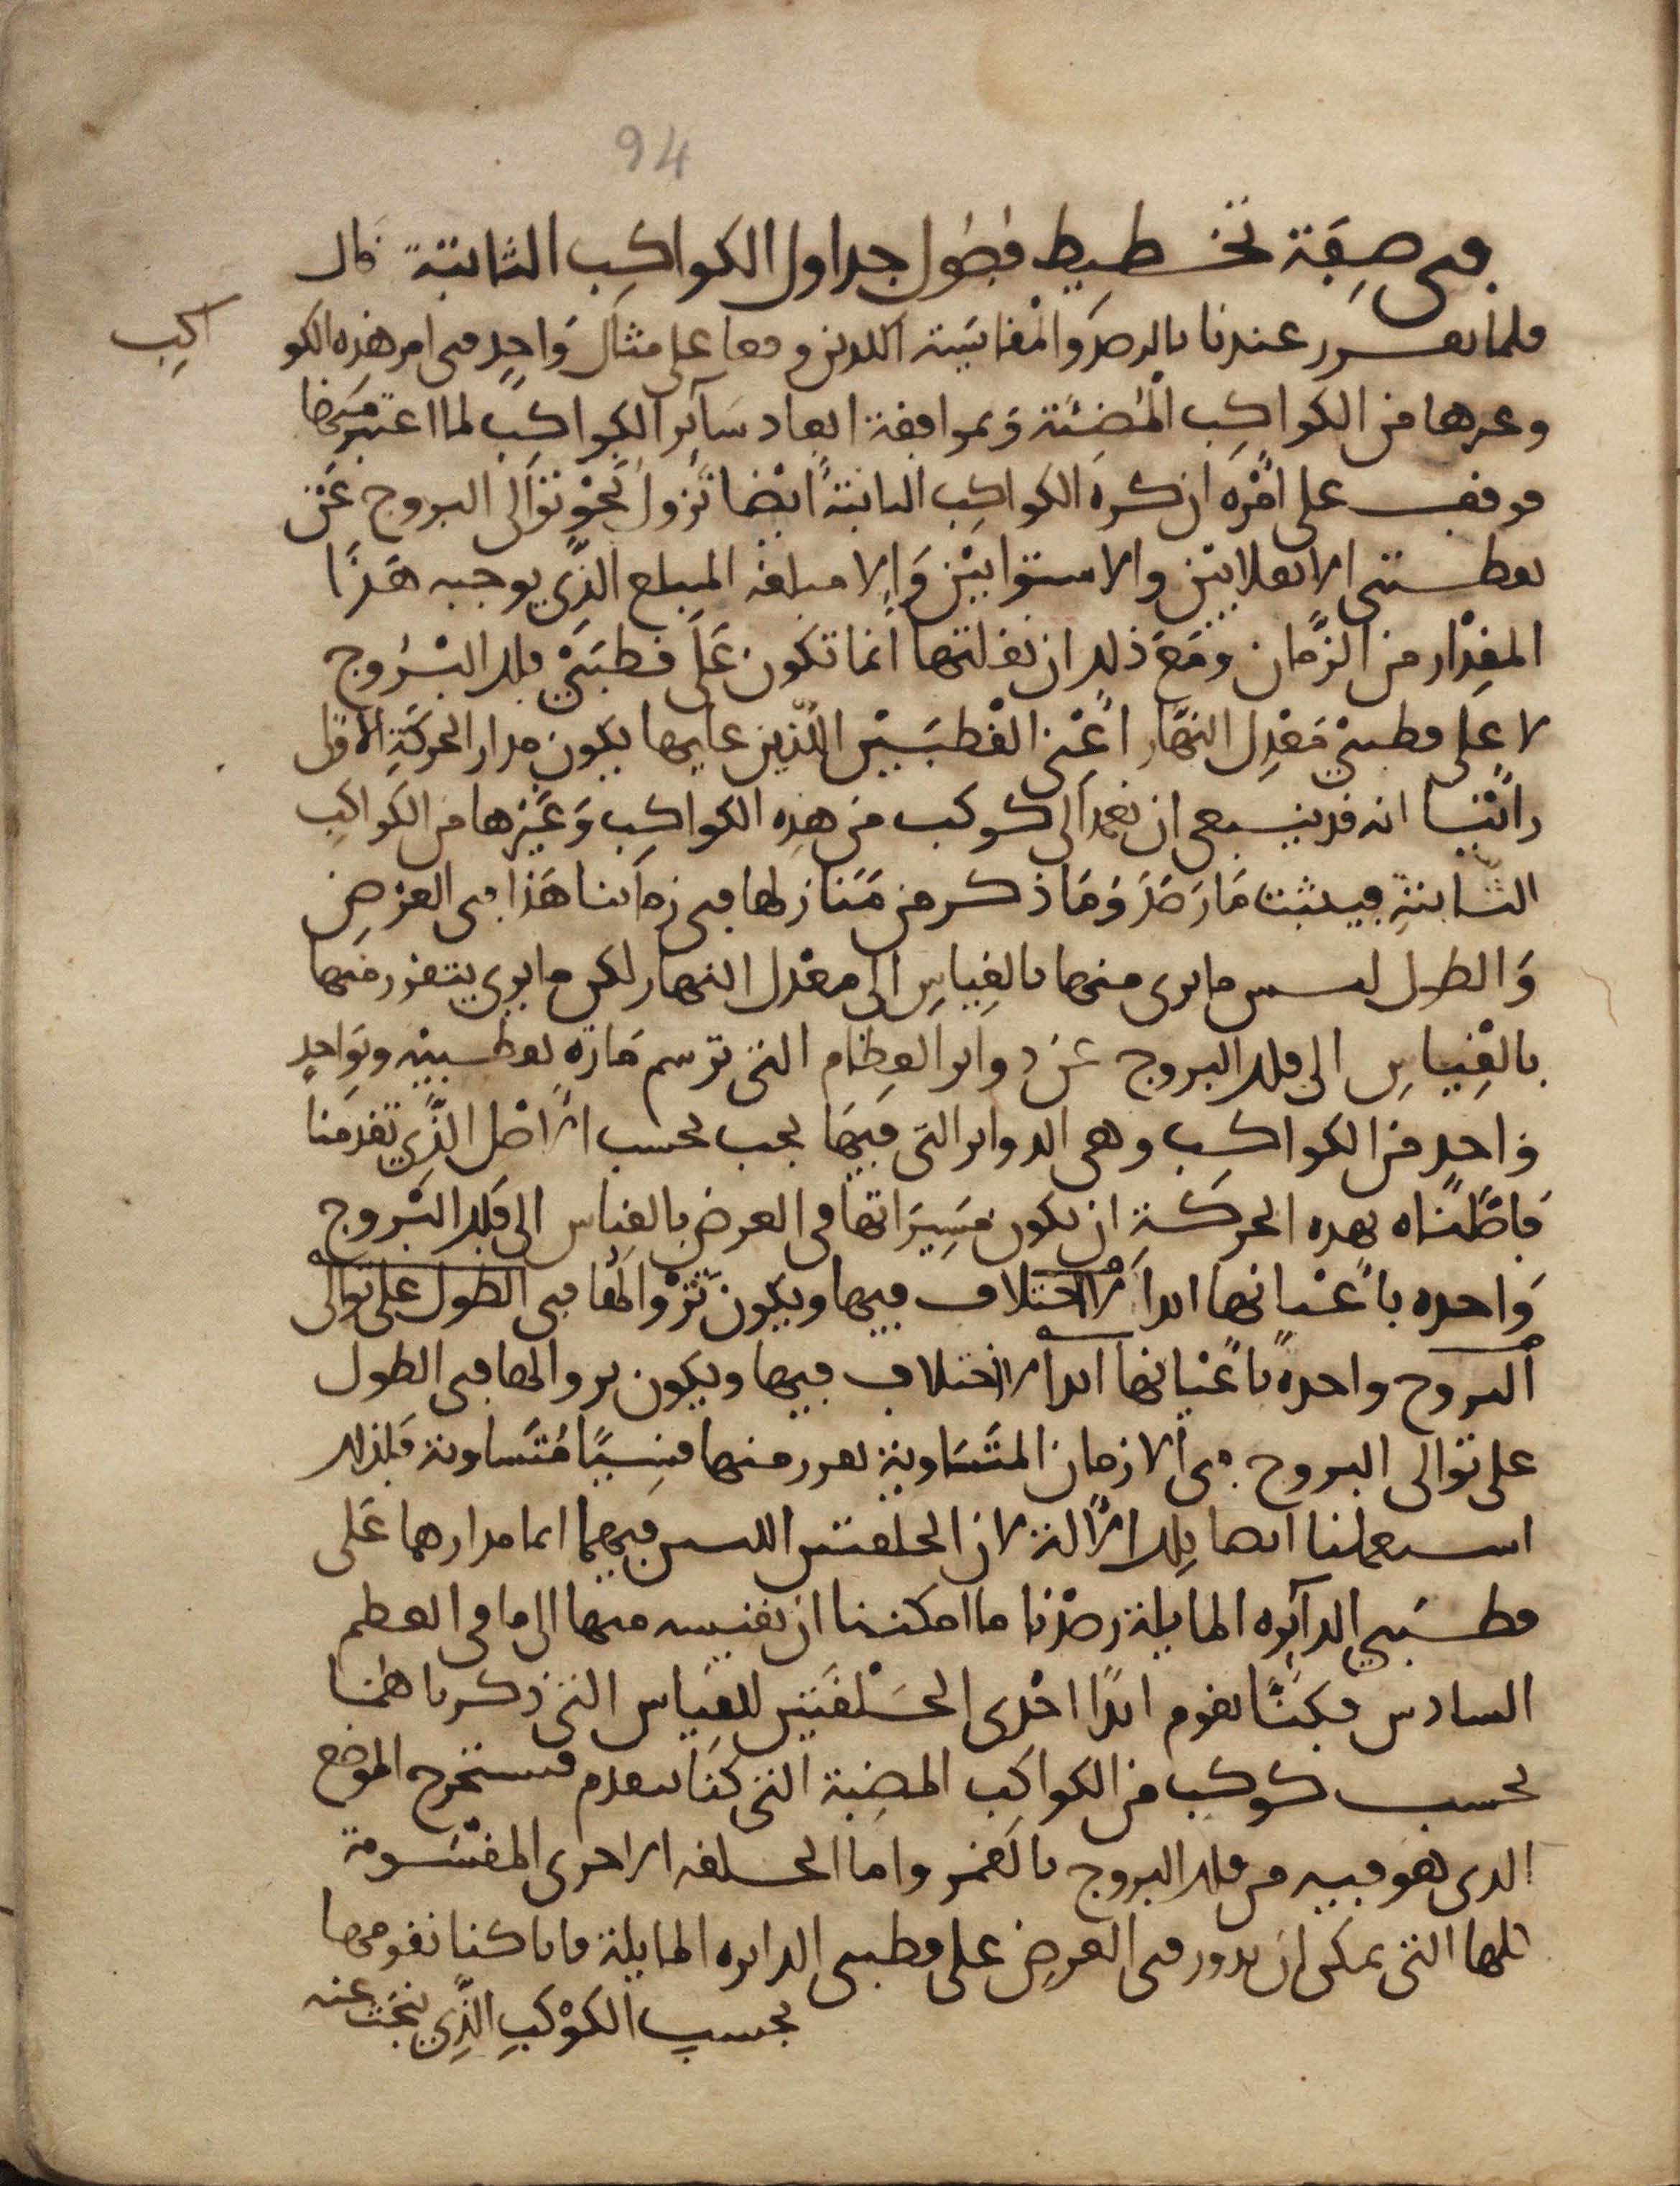 94
في صفة تخطيط فصول جداول الكواكب الثابتة قال
فلما تقرر عندنا بالرصد والمقايسة اللذين وقعا على مثال واحد في امر هذه الكو
اكب
وغيرها من الكواكب المضئة وبموافقة ابعاد ساير الكواكب لما اعتبر منها
فوقف على امره ان كرة الكواكب الثابتة ايضا تزول نحو توالى البروج عن
نقطتى الانقلابين والاستوايين والا مبلغه المبلغ الذي يوجبه هذا
المقدار من الزمان ومع ذلك ان نقلتها انما تكون على قطبي فلك البروج
لا على قطبي معدل النهار اعني القطبين اللذين عليهما يكون مدار الحركة الاولى
راينا انه قد ينبغي ان نعمد الى كوكب من هذه الكواكب وغيرها من الكواكب
الثابتة فيثبت ما رصد وما ذكر من منازلها في زماننا هذا في العرض
والطول ليس ما يرى منها بالقياس الى معدل النهار لكن ما يرى يتقرر منها
بالقياس الى فلك البروج عن دواير العظام التي ترسم مارة بقطبيه وبواحد
واحد من الكواكب وهي الدواير التي فيها يجب بحسب الاصل الذي تقدمنا
فاصلناه بهذه الحركة ان يكون مسيراتها في العرض بالقياس الى فلك البروج
واحده باعيانها ابدا لا اختلاف فيها ويكون تزوالها في الطول على توالى
البروج واحدة باعيانها ابدا لا اختلاف فيها ويكون زوالها في الطول
على توالى البروج في الازمان المتساوية يقرر منها قسيا متساوية فلذلك
استعملنا ايضا تلك الالة لان الحلقتين اللتين فيهما انما مدارهما على
قطبي الدايره المايلة رصدنا ما امكننا ان نقيسه منها الى ما في العظم
السادس فكنا نقوم ابدا احدى الحلقتين للقياس التي ذكرناها
بحسب كوكب من الكواكب المضية التي كنا بتقدم فنستخرج الموضع
الذى هو فيه من فلك البروج بالقمر واما الحلقه الاخرى المقسومة
كلها التي يمكن ان تدور في العرض على قطبي الدايره المايلة فانا كنا نقومها
بحسب الكوكب الذي نبحث عنه